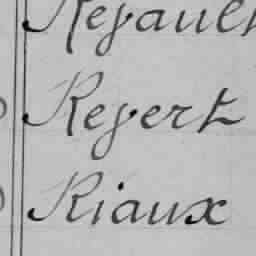 Rejault
Rejert
Riaux